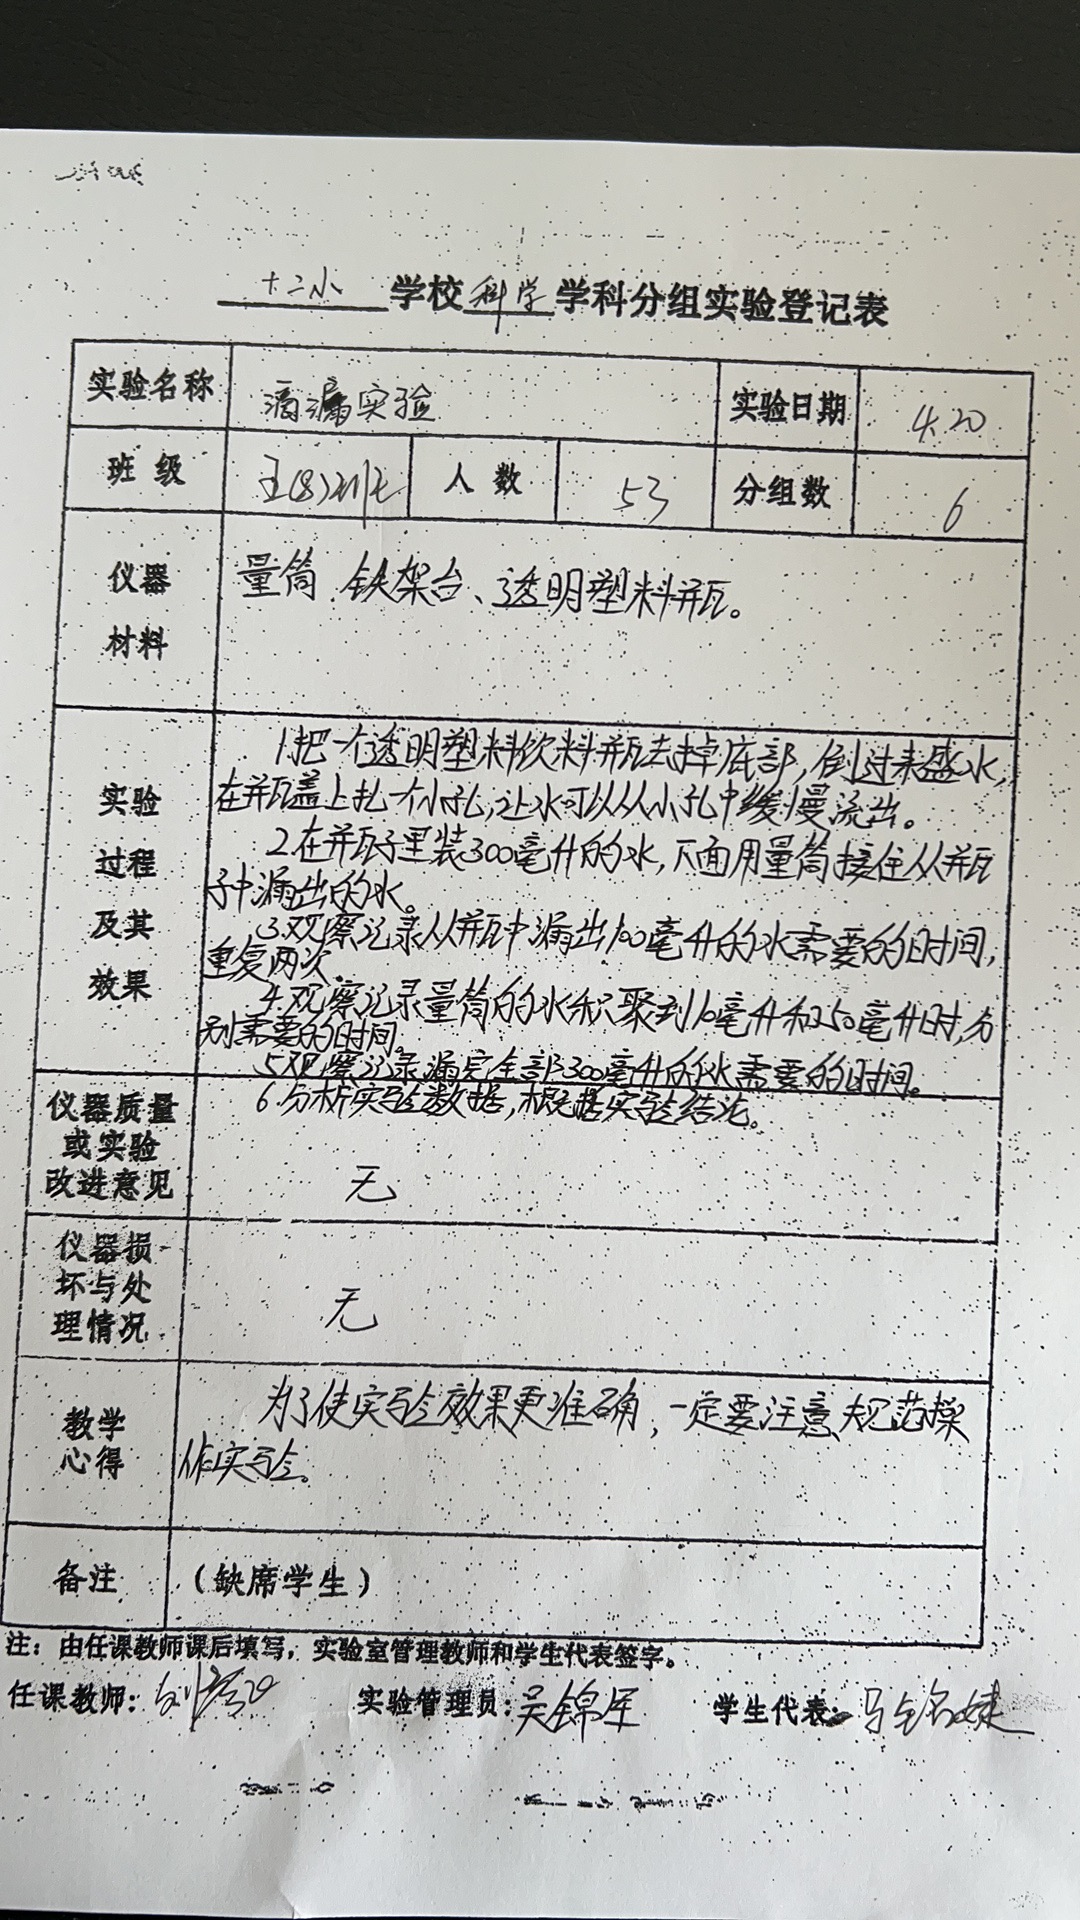 十二小 学校 科学 学科分组实验登记表
实验名称 滴漏实验 实验日期 4.20
班级 五(8)班 人数 53 分组数 6
仪器
材料
量筒 铁架台、透明塑料瓶。
实验
过程
及其
效果
1.把一个透明塑料饮料瓶去掉底部,倒过来盛水,
在瓶盖上扎一个小孔,让水可以从小孔中缓慢流出。
2.在瓶子里装300毫升的水,下面用量筒接住从瓶
子中漏出的水。
3.观察记录从瓶中漏出100毫升的水需要的时间,
重复两次.
4.观察记录量筒的水积聚到10毫升和250毫升时,分
别需要的时间。
5.观察记录漏完全部300毫升的水需要的时间。
6.分析实验数据,根据实验结论。
仪器质量
或实验
改进意见
无
仪器损
坏与处
理情况
无
教学
心得
为了使实验效果更准确,一定要注意规范操
作实验。
备注 (缺席学生)
注:由任课教师课后填写,实验室管理教师和学生代表签字。
任课教师: 实验管理员:吴锦军 学生代表:马铭婕